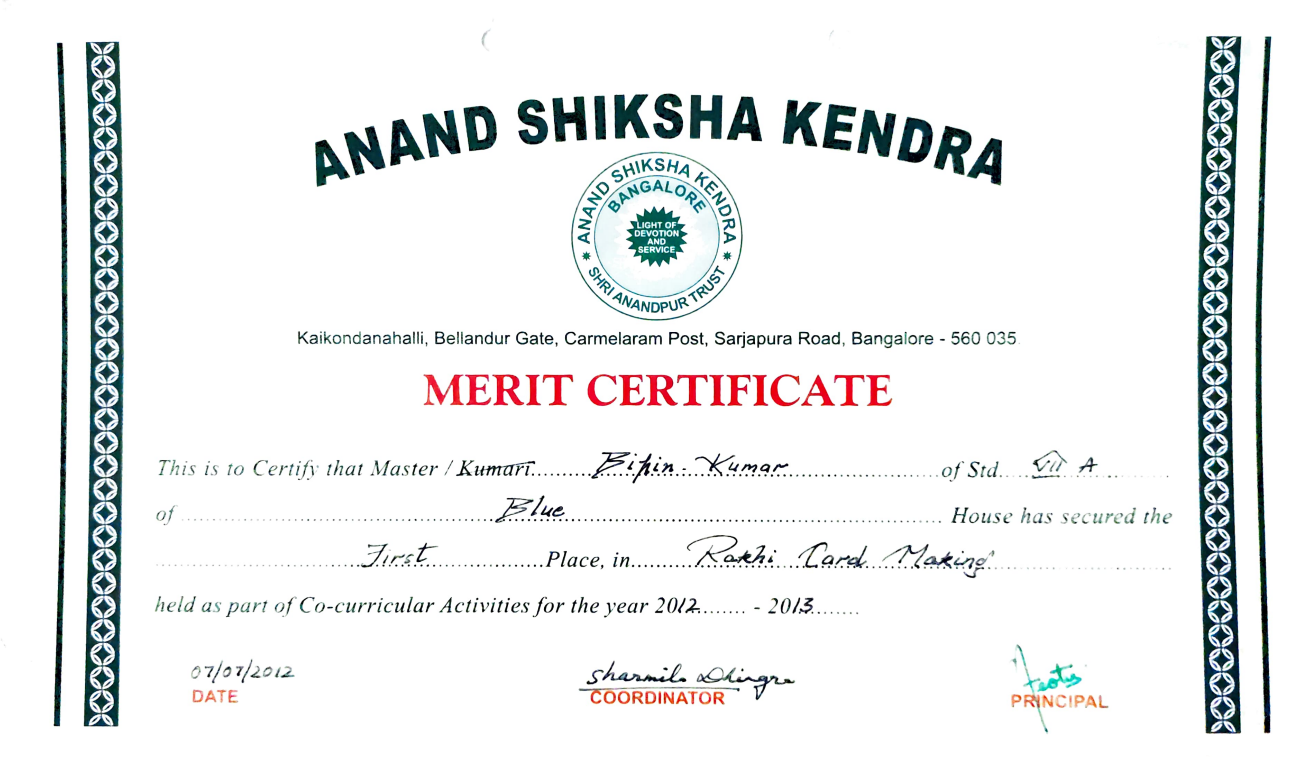 ANAND SHIKSHA KENDRA
ANAND SHIKSHA KENDRA
BANGALORE
LIGHT OF
DEVOTION
AND
SERVICE
* SHRI ANANDPUR TRUST *
Kaikondanahalli, Bellandur Gate, Carmelaram Post, Sarjapura Road, Bangalore - 560 035.
MERIT CERTIFICATE
This is to Certify that Master / Kumari.......... Bipin Kumar ..............................of Std.... VII A ............
of .......................................... Blue ................................................ House has secured the
............................ First ................Place, in......... Rakhi Card Making ..........................
held as part of Co-curricular Activities for the year 2012....... - 2013.......
07/07/2012
DATE
Sharmila Dhingra
COORDINATOR
PRINCIPAL